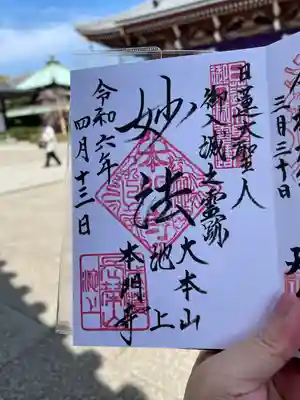 日蓮大聖人
御入城之霊跡
妙法
大本山
池上
本門寺
令和六年
四月十三日
三月三十日